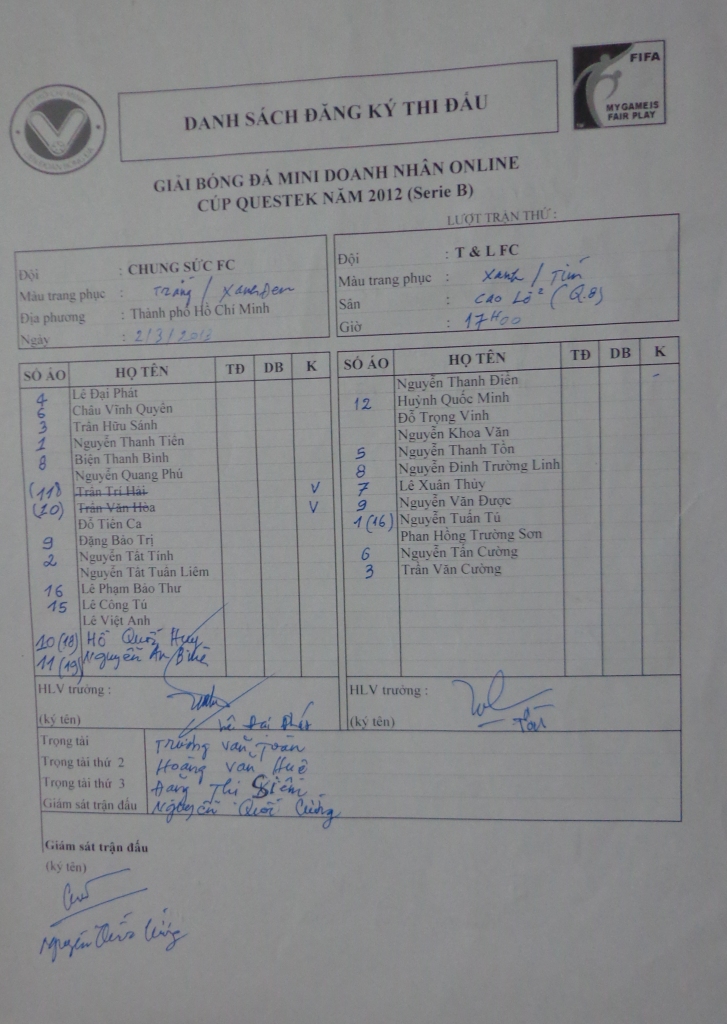 FIFA
MY GAME IS
FAIR PLAY
DANH SÁCH ĐĂNG KÝ THI ĐẤU
GIẢI BÓNG ĐÁ MINI DOANH NHÂN ONLINE
CÚP QUESTEK NĂM 2012 (Serie B)
LƯỢT TRẬN THỨ :
Đội : CHUNG SỨC FC
Màu trang phục : Trắng / Xanh Đen
Địa phương : Thành phố Hồ Chí Minh
Ngày : 2/3/2013
Đội : T & L FC
Màu trang phục : Xanh / Tím
Sân : Cao Lỗ 2 (Q.8)
Giờ : 17H00
SỐ ÁO HỌ TÊN TĐ DB K
4 Lê Đại Phát
6 Châu Vĩnh Quyền
3 Trần Hữu Sánh
1 Nguyễn Thanh Tiến
8 Biện Thanh Bình
Nguyễn Quang Phú
(11) Trần Trí Hải V
(10) Trần Văn Hòa V
Đỗ Tiên Ca
9 Đặng Bảo Trị
2 Nguyễn Tất Tính
Nguyễn Tất Tuân Liêm
16 Lê Phạm Bảo Thư
15 Lê Công Tú
Lê Việt Anh
10 (18) Hồ Quốc Huy
11 (19) Nguyễn An Biên
SỐ ÁO HỌ TÊN TĐ DB K
Nguyễn Thanh Điền
12 Huỳnh Quốc Minh
Đỗ Trọng Vinh
Nguyễn Khoa Văn
5 Nguyễn Thanh Tồn
8 Nguyễn Đinh Trường Linh
7 Lê Xuân Thủy
9 Nguyễn Văn Được
1 (16) Nguyễn Tuấn Tú
Phan Hồng Trường Sơn
6 Nguyễn Tấn Cường
3 Trần Văn Cường
HLV trưởng :
(ký tên) Lê Đại Phát
HLV trưởng :
(ký tên)
Trọng tài Trương Văn Toàn
Trọng tài thứ 2 Hoàng Văn Huê
Trọng tài thứ 3 Đặng Thi
Giám sát trận đấu Nguyễn Quốc Cường
Giám sát trận đấu
(ký tên)
Nguyễn Quốc Cường